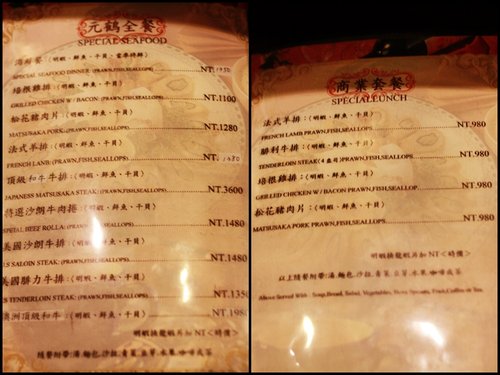 元鶴全餐
SPECIAL SEAFOOD
海鮮餐〈明蝦、鮮魚、干貝、當季時鮮〉
SPECIAL SEAFOOD DINNER (PRAWN,FISH,SEALLOPS) NT.
培根雞排:〈明蝦、鮮魚、干貝〉
GRILLED CHICKEN W / BACON: (PRAWN,FISH,SEALLOPS) NT.1100
松花豬肉片:〈明蝦、鮮魚、干貝〉
MATSUSAKA PORK: (PRAWN,FISH,SEALLOPS) NT.1280
法式羊排:〈明蝦、鮮魚、干貝〉
FRENCH LAMB: (PRAWN,FISH,SEALLOPS) NT.
頂級和牛牛排:〈明蝦、鮮魚、干貝〉
JAPANESS MATSUSAKA STEAK: (PRAWN,FISH,SEALLOPS) NT.3600
特選沙朗牛肉捲:〈明蝦、鮮魚、干貝〉
SPECIAL BEEF ROLLA: (PRAWN,FISH,SEALLOPS) NT.1480
美國沙朗牛排:〈明蝦、鮮魚、干貝〉
U.S SALOIN STEAK: (PRAWN,FISH,SEALLOPS) NT.1480
美國腓力牛排:〈明蝦、鮮魚、干貝〉
US TENDERLOIN STEAK: (PRAWN,FISH,SEALLOPS) NT.1350
澳洲頂級和牛:〈明蝦、鮮魚、干貝〉 NT.1980
明蝦換龍蝦另加NT<時價>
隨餐附帶:湯.麵包.沙拉.青菜.豆芽.水果.咖啡或茶
商業套餐
SPECIAL LUNCH
法式羊排:〈明蝦、鮮魚、干貝〉
FRENCH LAMB PRAWN,FISH,SEALLOPS NT.980
腓利牛排:〈明蝦、鮮魚、干貝〉
TENDERLOIN STEAK(4盎司)PRAWN,FISH,SEALLOPS NT.980
培根雞排:〈明蝦、鮮魚、干貝〉
GRILLED CHICKEN W / BACON PRAWN,FISH,SEALLOP NT.980
松花豬肉片:〈明蝦、鮮魚、干貝〉
MATSUSAKA PORK PRAWN,FISH,SEALLOPS NT.980
明蝦換龍蝦另加NT<時價>
以上隨餐附帶:湯.麵包.沙拉.青菜.豆芽.水果.咖啡或茶
Above Served With : Soup,Bread, Salad, Vegetables, Bean Sprouts, Fruit,Coffee or Tea.